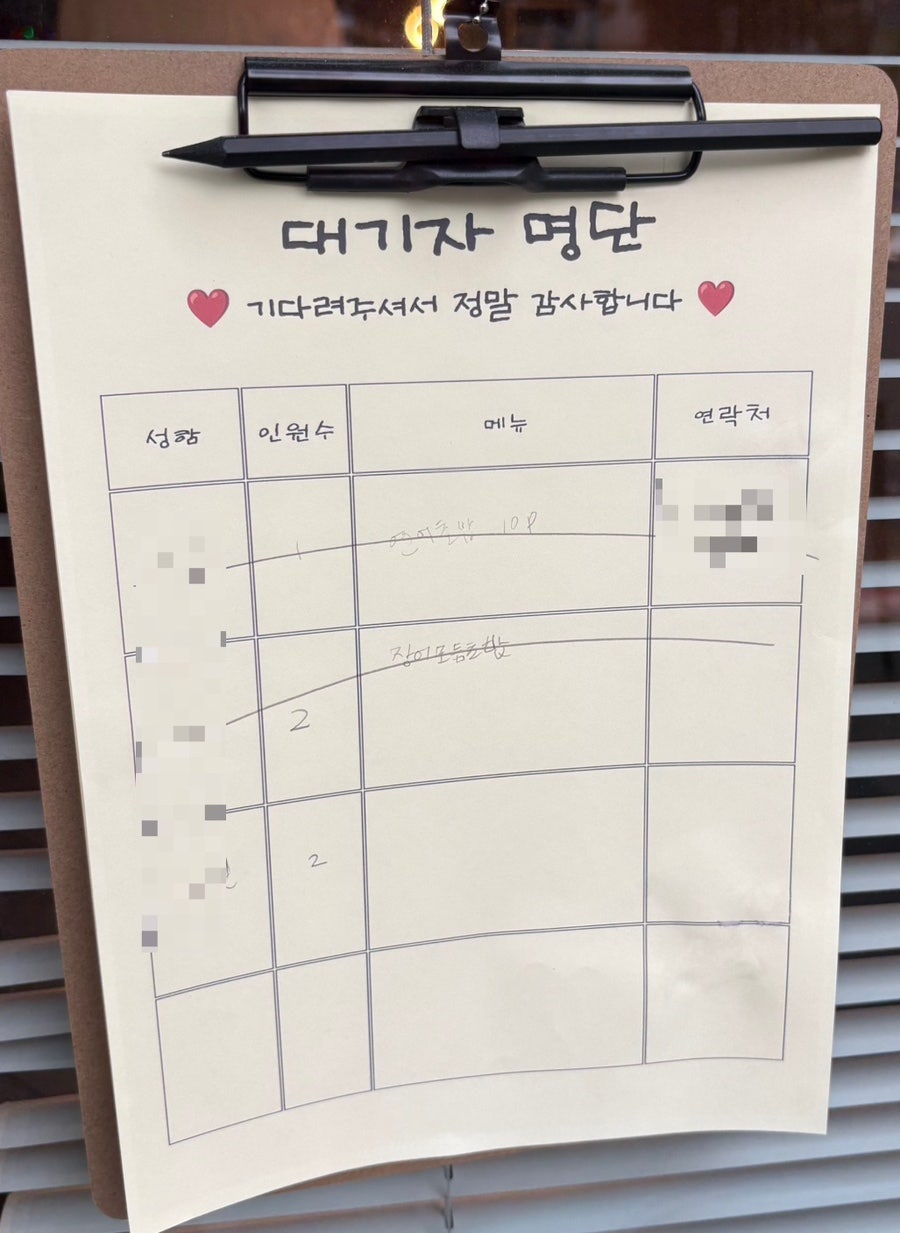 대기자 명단
기다려주셔서 정말 감사합니다
성함 인원수 메뉴 연락처
1 연어초밥 10P
2 장어모듬초밥
2